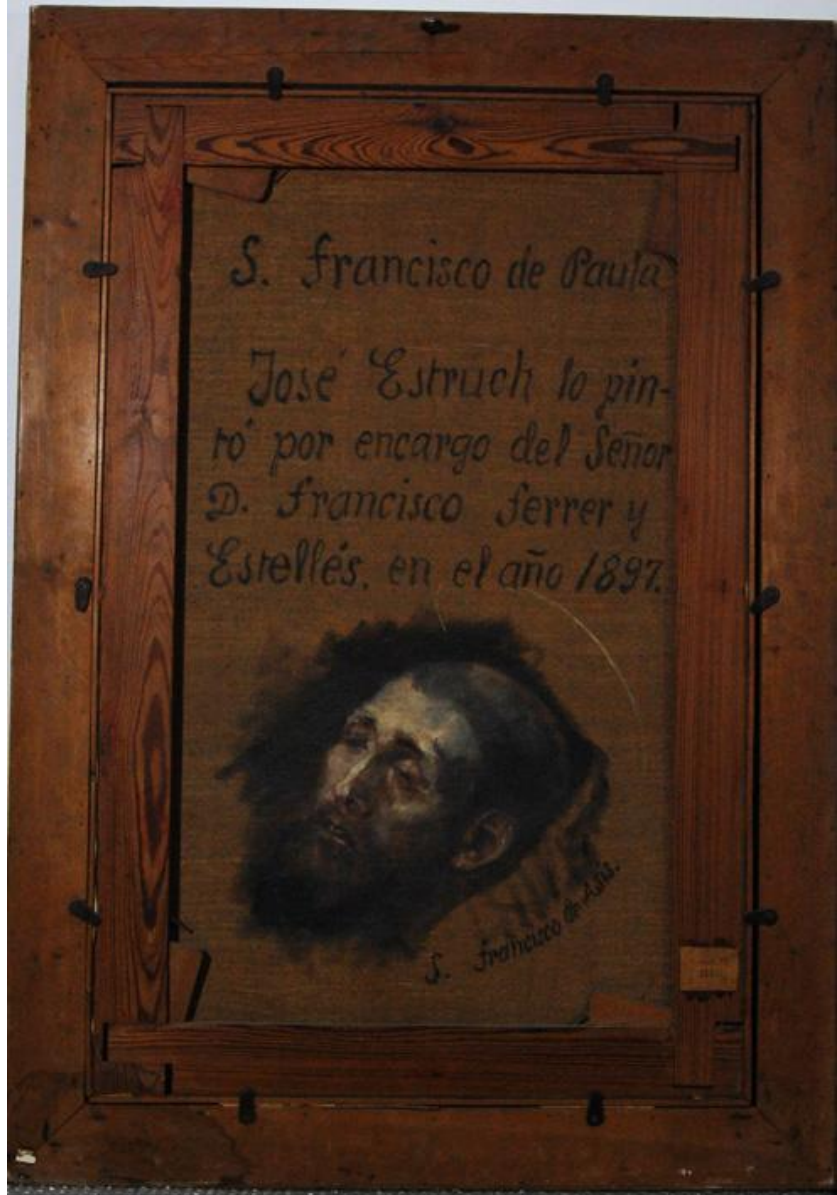 S. Francisco de Paula
José Estruch lo pin-
tó por encargo del Señor
D. Francisco Ferrer y
Estellés. en el año 1897.
S. Francisco de Asís.